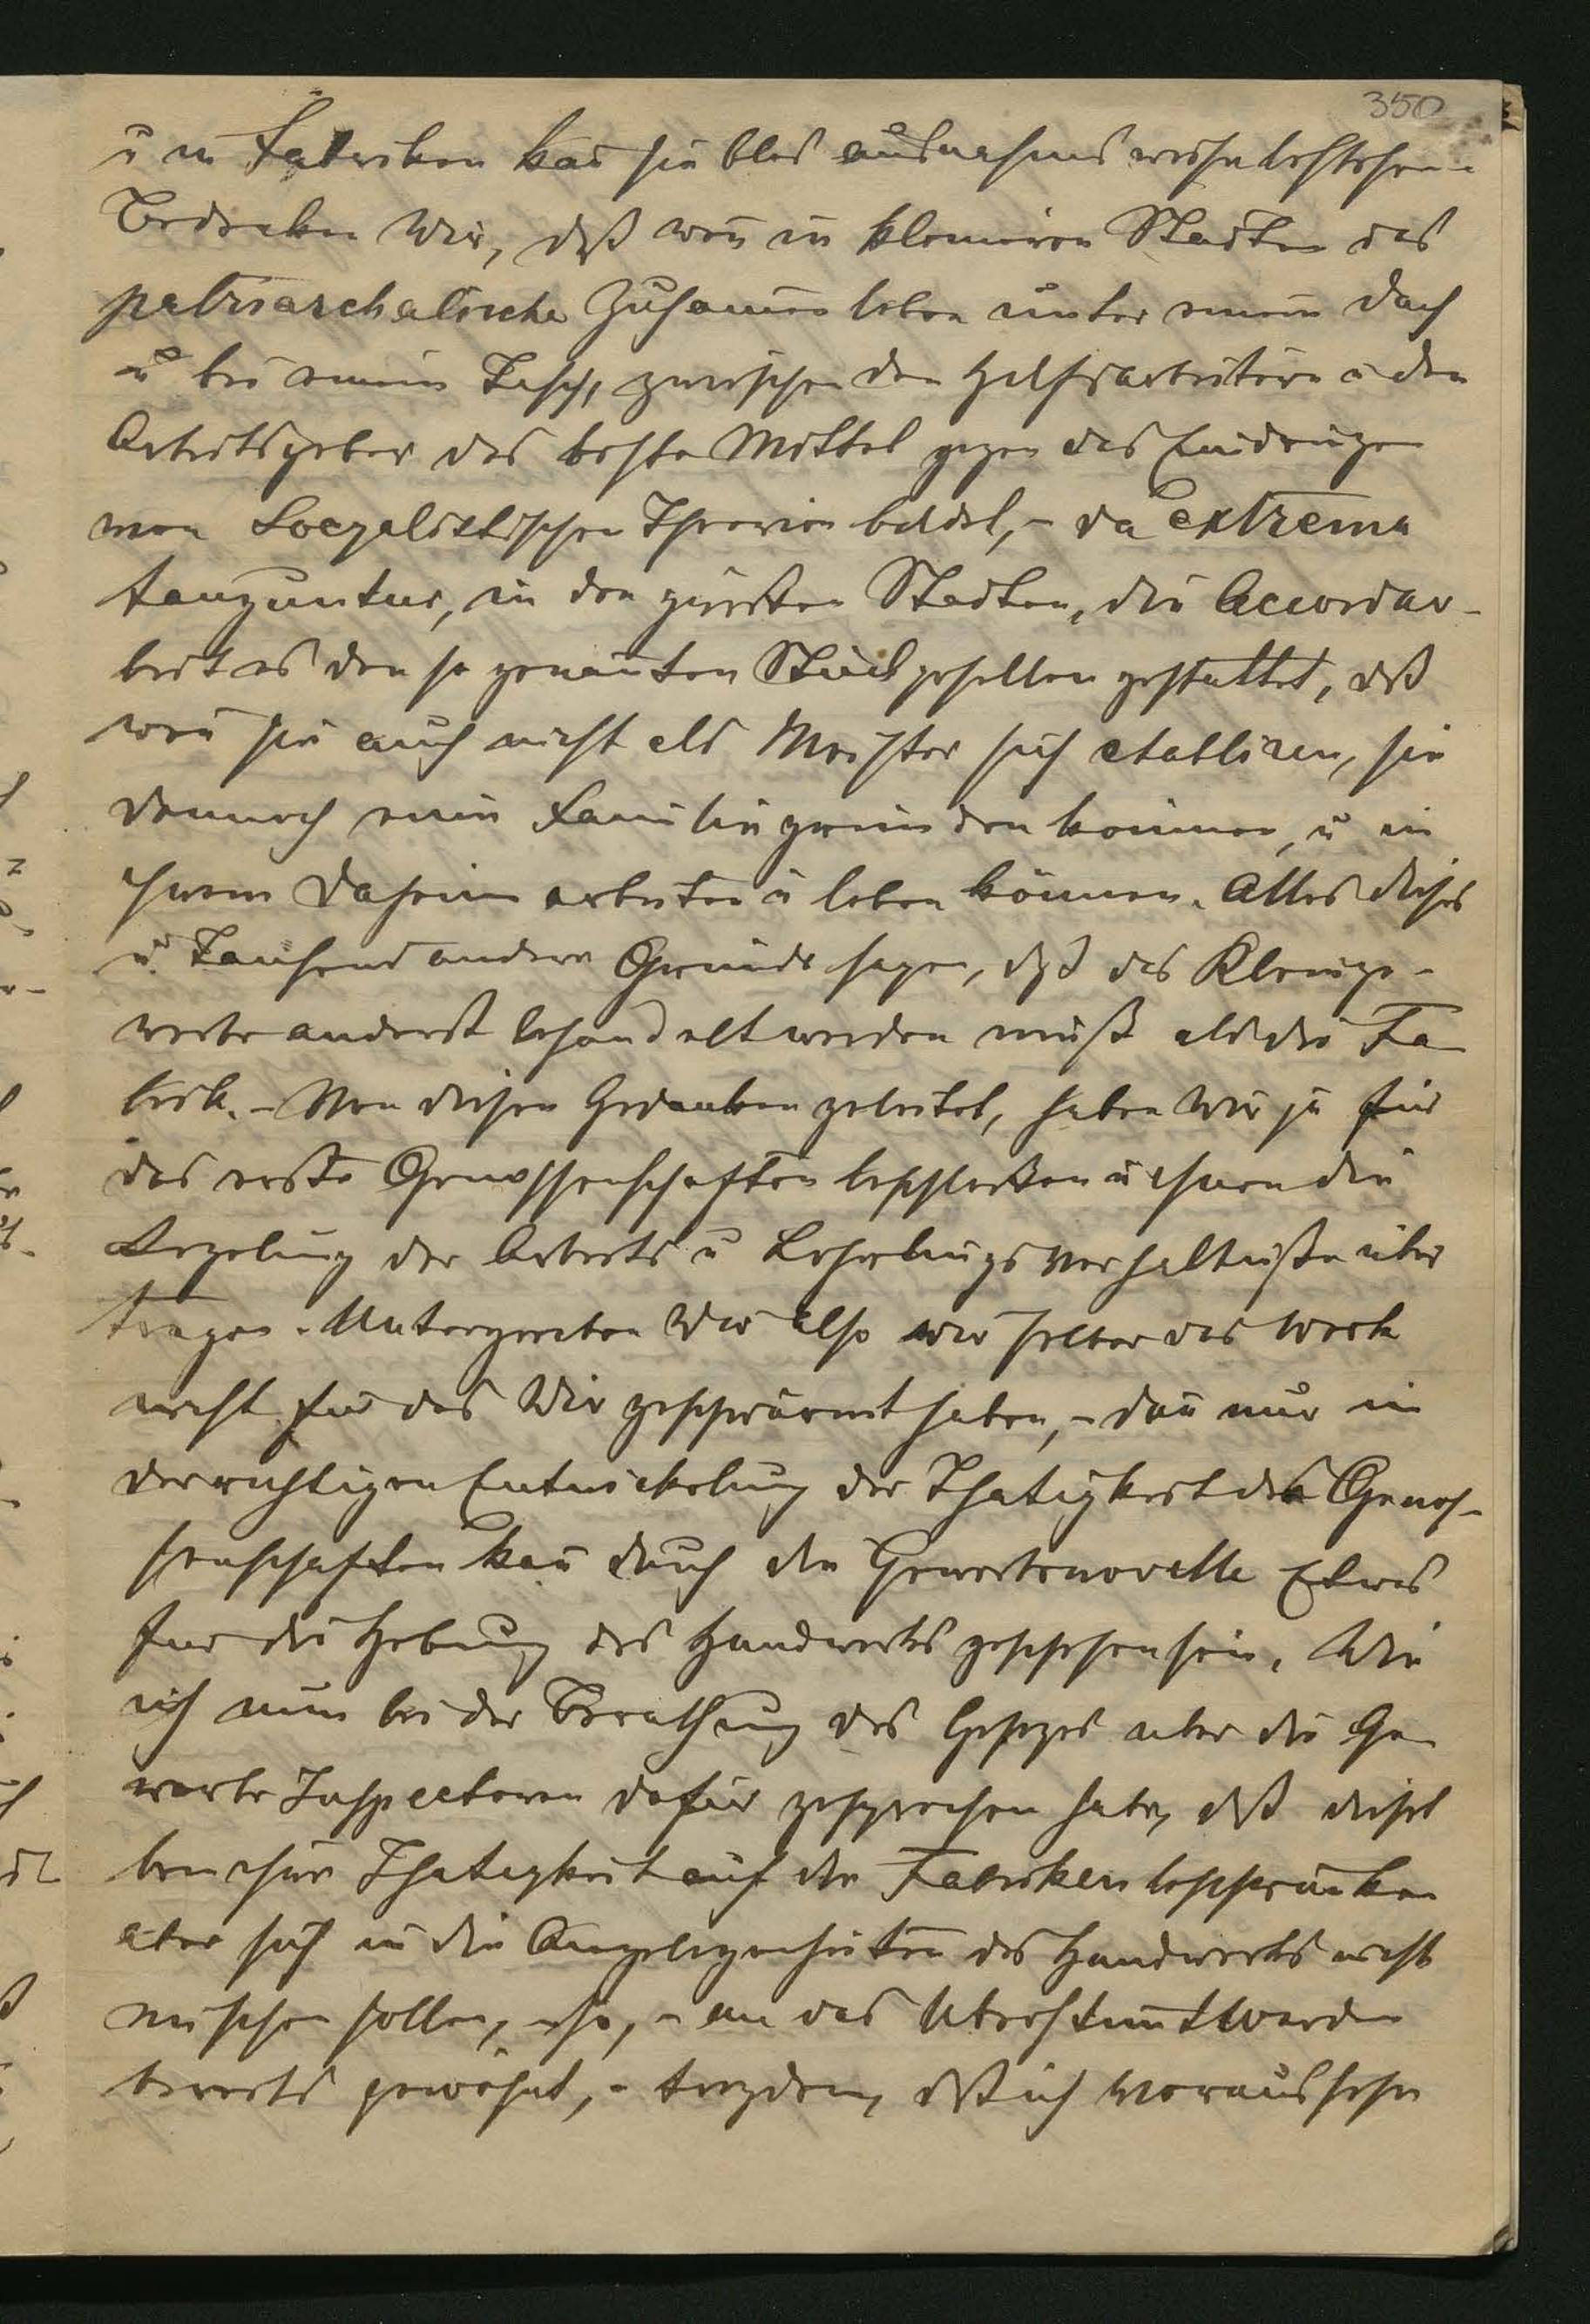 350
u in Fabriken kañ sie blos ausnahmsweise bestehen.
Bedenken Wir, daß weñ in kleineren Stadten das
patriarchalische Zusammen leben unter einem Dach
u bei einem Tisch, zwischen den Hilfsarbeitern u den
Arbeitsgeber das beste Mittel gegen das Eindringen
von Socyalistischen Theorien bildet, – da extrema
tanguntur, in den größten Stadten, die Accordar-
beit es den so genañten Stückgesellen gestattet, daß
weñ sie auch nicht als Meister sich etabliren, sie
dennoch eine Familie gründen können, u in
ihrem Daheim arbeiten u leben können. Alles dieses
u. Tausend andere Gründe sagen, daß das Kleinge-
werbe anderst behandelt werden muß als die Fa-
brik. – Von diesen Gedanken geleitet, haben Wir ja für
das erste Genossenschaften beschloßen u ihnen die
Regelung der Arbeits u Lehrlingsverhaltniße über
tragen. Untergraben Wir also wir selber das Werk
nicht für das Wir geschwärmt haben, – deñ nur in
der richtigen Entwickelung der Thatigkeit der Genos-
senschaften kañ durch die Gewerbenovelle Etwas
für die Hebung des Handwerks geschehen sein. Wie
ich nun bei der Berathung des Gesezes uber die Ge
werbe Inspectoren dafür gesprochen habe, daß diesel
ben ihre Thatigkeit auf die Fabriken beschränken
aber sich in die Angelegenheiten des Handwerks nicht
mischen sollen, – so, – an das Uberstimmt Werden
bereits gewöhnt, – trozdem, daß ich Voraussehe